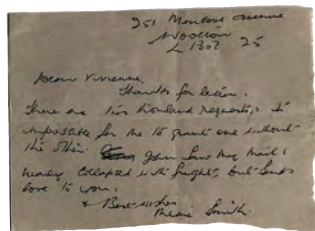 251 Menlove Avenue
Woolton
L'Pool 25
Dear Vivienne,
Thanks for letter.
There are two thousand requests, it
impossible for me to grant one without
the other. John saw my mail &
nearly collapsed with fright, but sends
love to you.
& Best wishes
Mimi Smith.